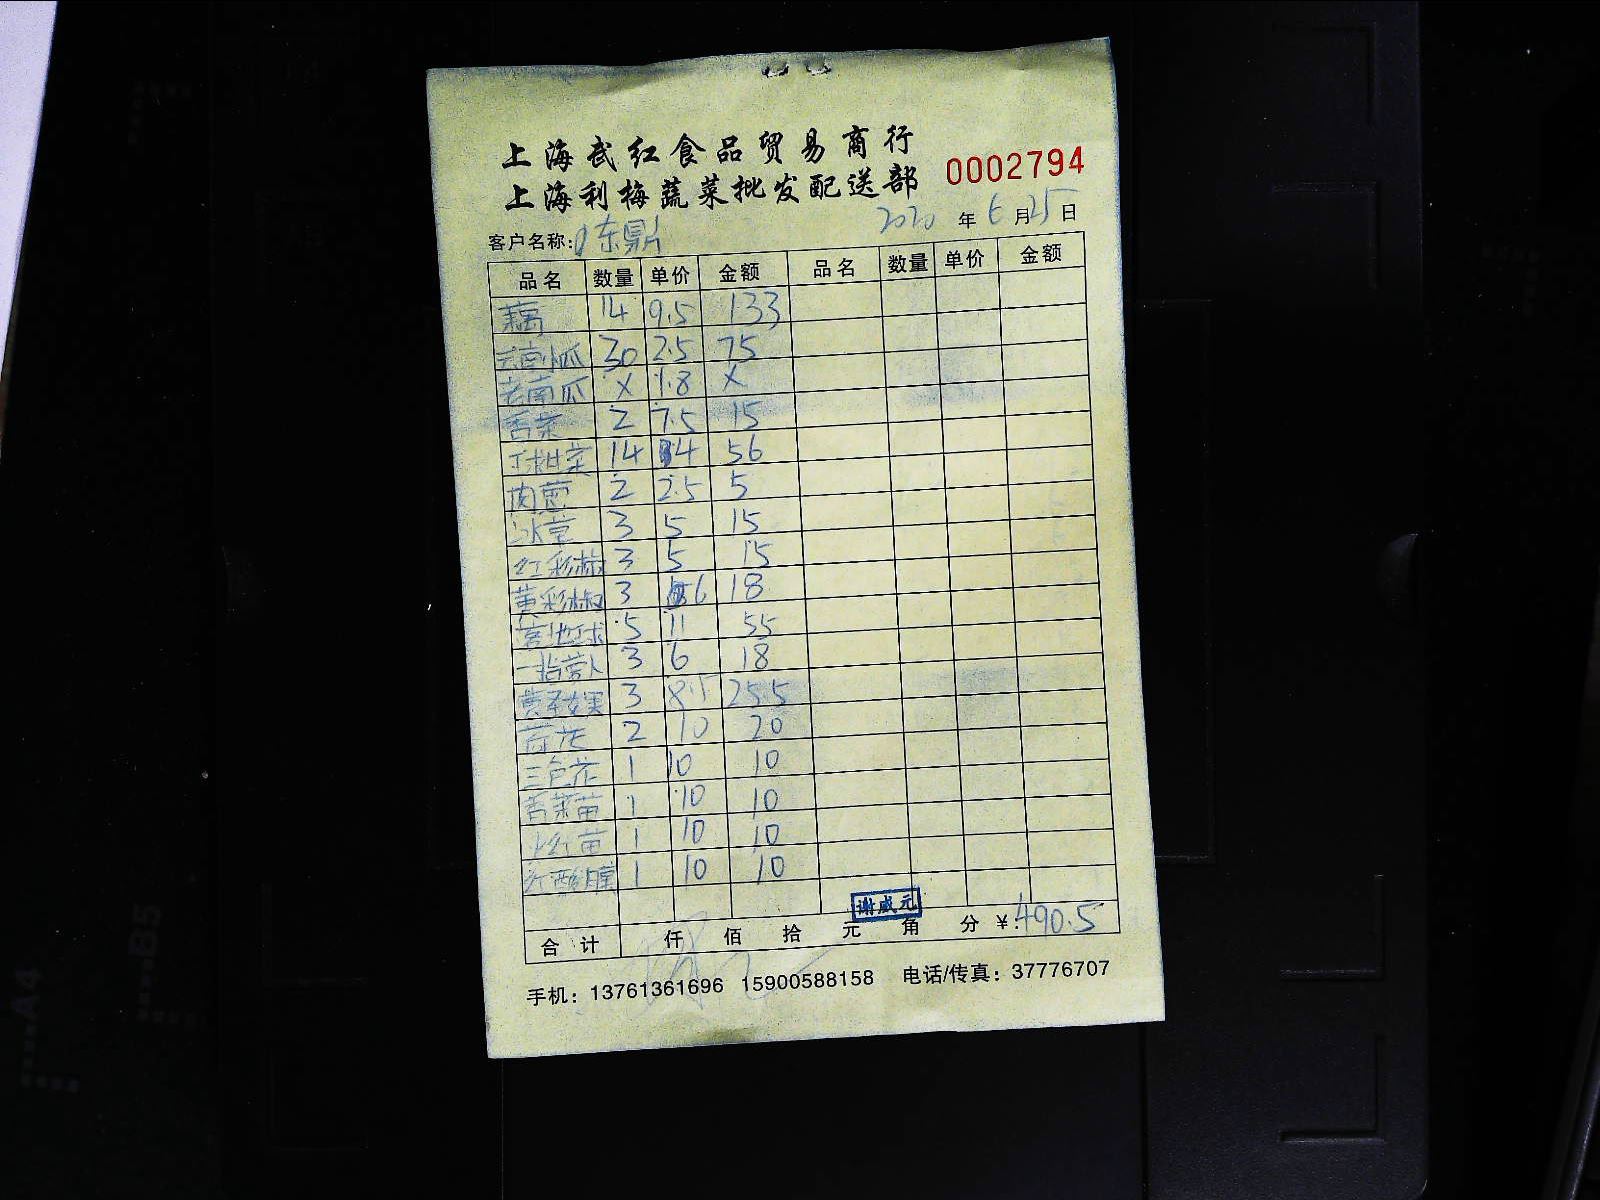 上海武红食品贸易商行
上海利梅蔬菜批发配送部
0002794
2020 年 6 月 25 日
客户名称:
品名 数量 单价 金额 品名 数量 单价 金额
藕 14 9.5 133
云南小瓜 30 2.5 75
老南瓜 X 1.8 X
香菜 2 7.5 15
14 4 56
肉葱 2 2.5 5
冰草 3 5 15
红彩椒 3 5 15
黄彩椒 3 6 18
5 11 55
一指萝卜 3 6 18
3 8.5 25.5
荷花 2 10 20
三色花 1 10 10
苦菜苗 1 10 10
小红苗 1 10 10
红酸膜 1 10 10
谢威元
合计 仟 佰 拾 元 角 分 ¥: 490.5
手机: 13761361696 15900588158 电话/传真: 37776707